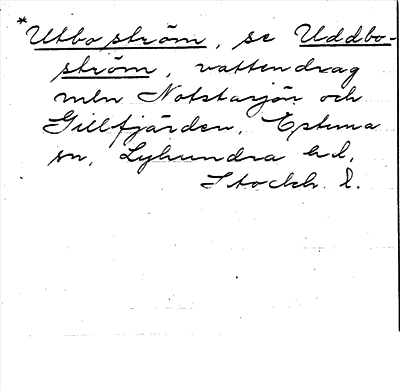 *Utboström, se Uddbo-
ström, vattendrag
mln Notstasjön och
Gillfjärden, Estuna
sn, Lyhundra hd,
Stockh. l.